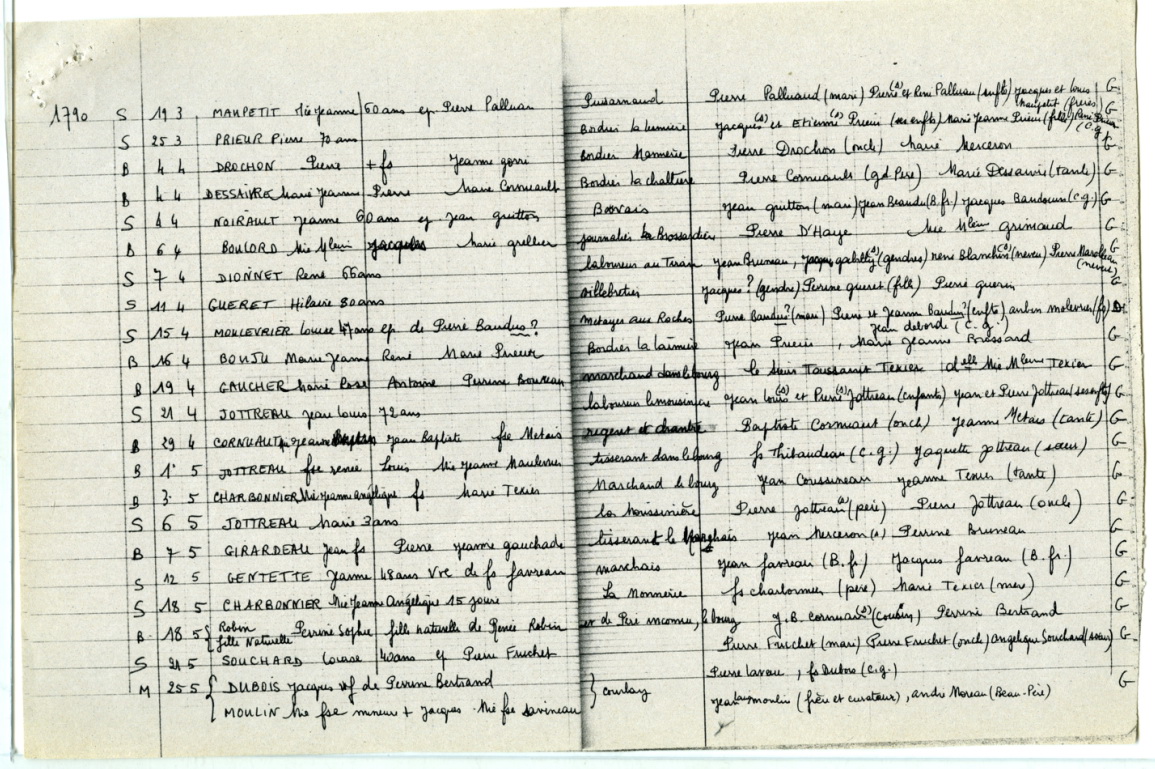 1790 S 19 3 MAUPETIT Mie Jeanne 60 ans ep. Pierre Palluau Puisarnaud Pierre Palluaud (mari) Pierre (s) et René Palluau (enfts) Jacques et Louis Maupetit (frères) G.
S 25 3 PRIEUR Pierre 70 ans Bordier la Jacques (s) et Etienne (s) Prieur (ses enfts) Marie Jeanne Prieur (fille) (c.g) G
B 4 4 DROCHON Pierre + fs Jeanne gorri Bordier Pierre Drochon (oncle) Marie Merceron
B 4 4 DESSAIVRE Marie Jeanne Pierre Marie Cornuault Bordier la Pierre Cornuault (gd Père) Marie Dessaivre (tante) G
S 4 4 NOIRAULT Jeanne 60 ans ep Jean guitton Beovais Jean guitton (mari) Jean Beaudu (B.fr.) Jacques Baudouin (c.g.) G
B 6 4 BOULORD Mie Mleine Jacques Marie grellier journalier la Brossardière Pierre D'Haye Mie Mleine grimaud G
S 7 4 DIONNET René 66 ans laboureur au Jean Bruneau, (gendres) René Blanchin (s) (neveu) Pierre (neveu) G
S 11 4 GUERET Hilaire 80 ans Villebretier Jacques ? (gendre) Perrine gueret (fille) Pierre guerin G
S 15 4 MOULEVRIER Louise 47 ans ep de Pierre Baudus ? Metayer aux Roches Pierre Baudu ? (mari) Pierre et Jeanne Baudu ? (enfts) (fs) D.
Jean deborde (c.g.)
B 16 4 BOUJU Marie Jeanne René Marie Prieur Bordier la Jean Prieur, Marie Jeanne Brossard G.
B 19 4 GAUCHER Marie Rose Antoine Perrine marchand dans le bourg le Sieur Toussaint Texier delle Mie Mleine Texier G.
S 21 4 JOTTREAU Jean Louis 72 ans laboureur limousinière Jean Louis (s) et Pierre (s) Jottreau (enfants) Jean et Pierre Jottreau G.
B 29 4 CORNUAULT Jean Baptiste fse Metais regent et chantre Baptiste Cornuault (oncle) Jeanne Metais (tante) G
B 1° 5 JOTTREAU fse renée Louis Mie Jeanne tisserant dans le bourg fs Thibaudeau (c.g.) Jaquette Jottreau (soeur) G
B 3. 5 CHARBONNIER Mie Jeanne Angélique fs Marie Texier Marchand le bourg Jean Cousineau Jeanne Texier (tante) G
S 6 5 JOTTREAU Marie 3 ans la Moissinière Pierre Jottreau (s) (père) Pierre Jottreau (oncle) G.
B 7 5 GIRARDEAU Jean fs Pierre Jeanne gauchade tisserant le Marchais Jean Merceron (s) Perrine Bruneau G
S 12 5 GENTETTE Jeanne 48 ans Vve de fs favreau marchais Jean favreau (B.f) Jacques favreau (B.fr.) G
S 18 5 CHARBONNIER Mie Jeanne Angélique 15 jours La Nonnerie fs charbonnier (père) Marie Texier (mère) G
B. 18.5 { Robin fille Naturelle Perrine Sophie fille naturelle de Renée Robin et de Père inconnu, le bourg J.B. Cornuau (s) (cousin) Perrine Bertrand G
S 21 5 SOUCHARD Louise 40 ans ep Pierre Fruchet Pierre Fruchet (mari) Pierre Fruchet (oncle) Angelique Souchard (soeur) G.
M 25 5 { DUBOIS Jacques vf de Perrine Bertrand } Courlay Pierre lavau, fs Dubois (c.g.)
{ MOULIN Mie fse mineur + Jacques. Mie fse savineau Jean Louis moulin (frère et curateur), andré Moreau (Beau-Père) G